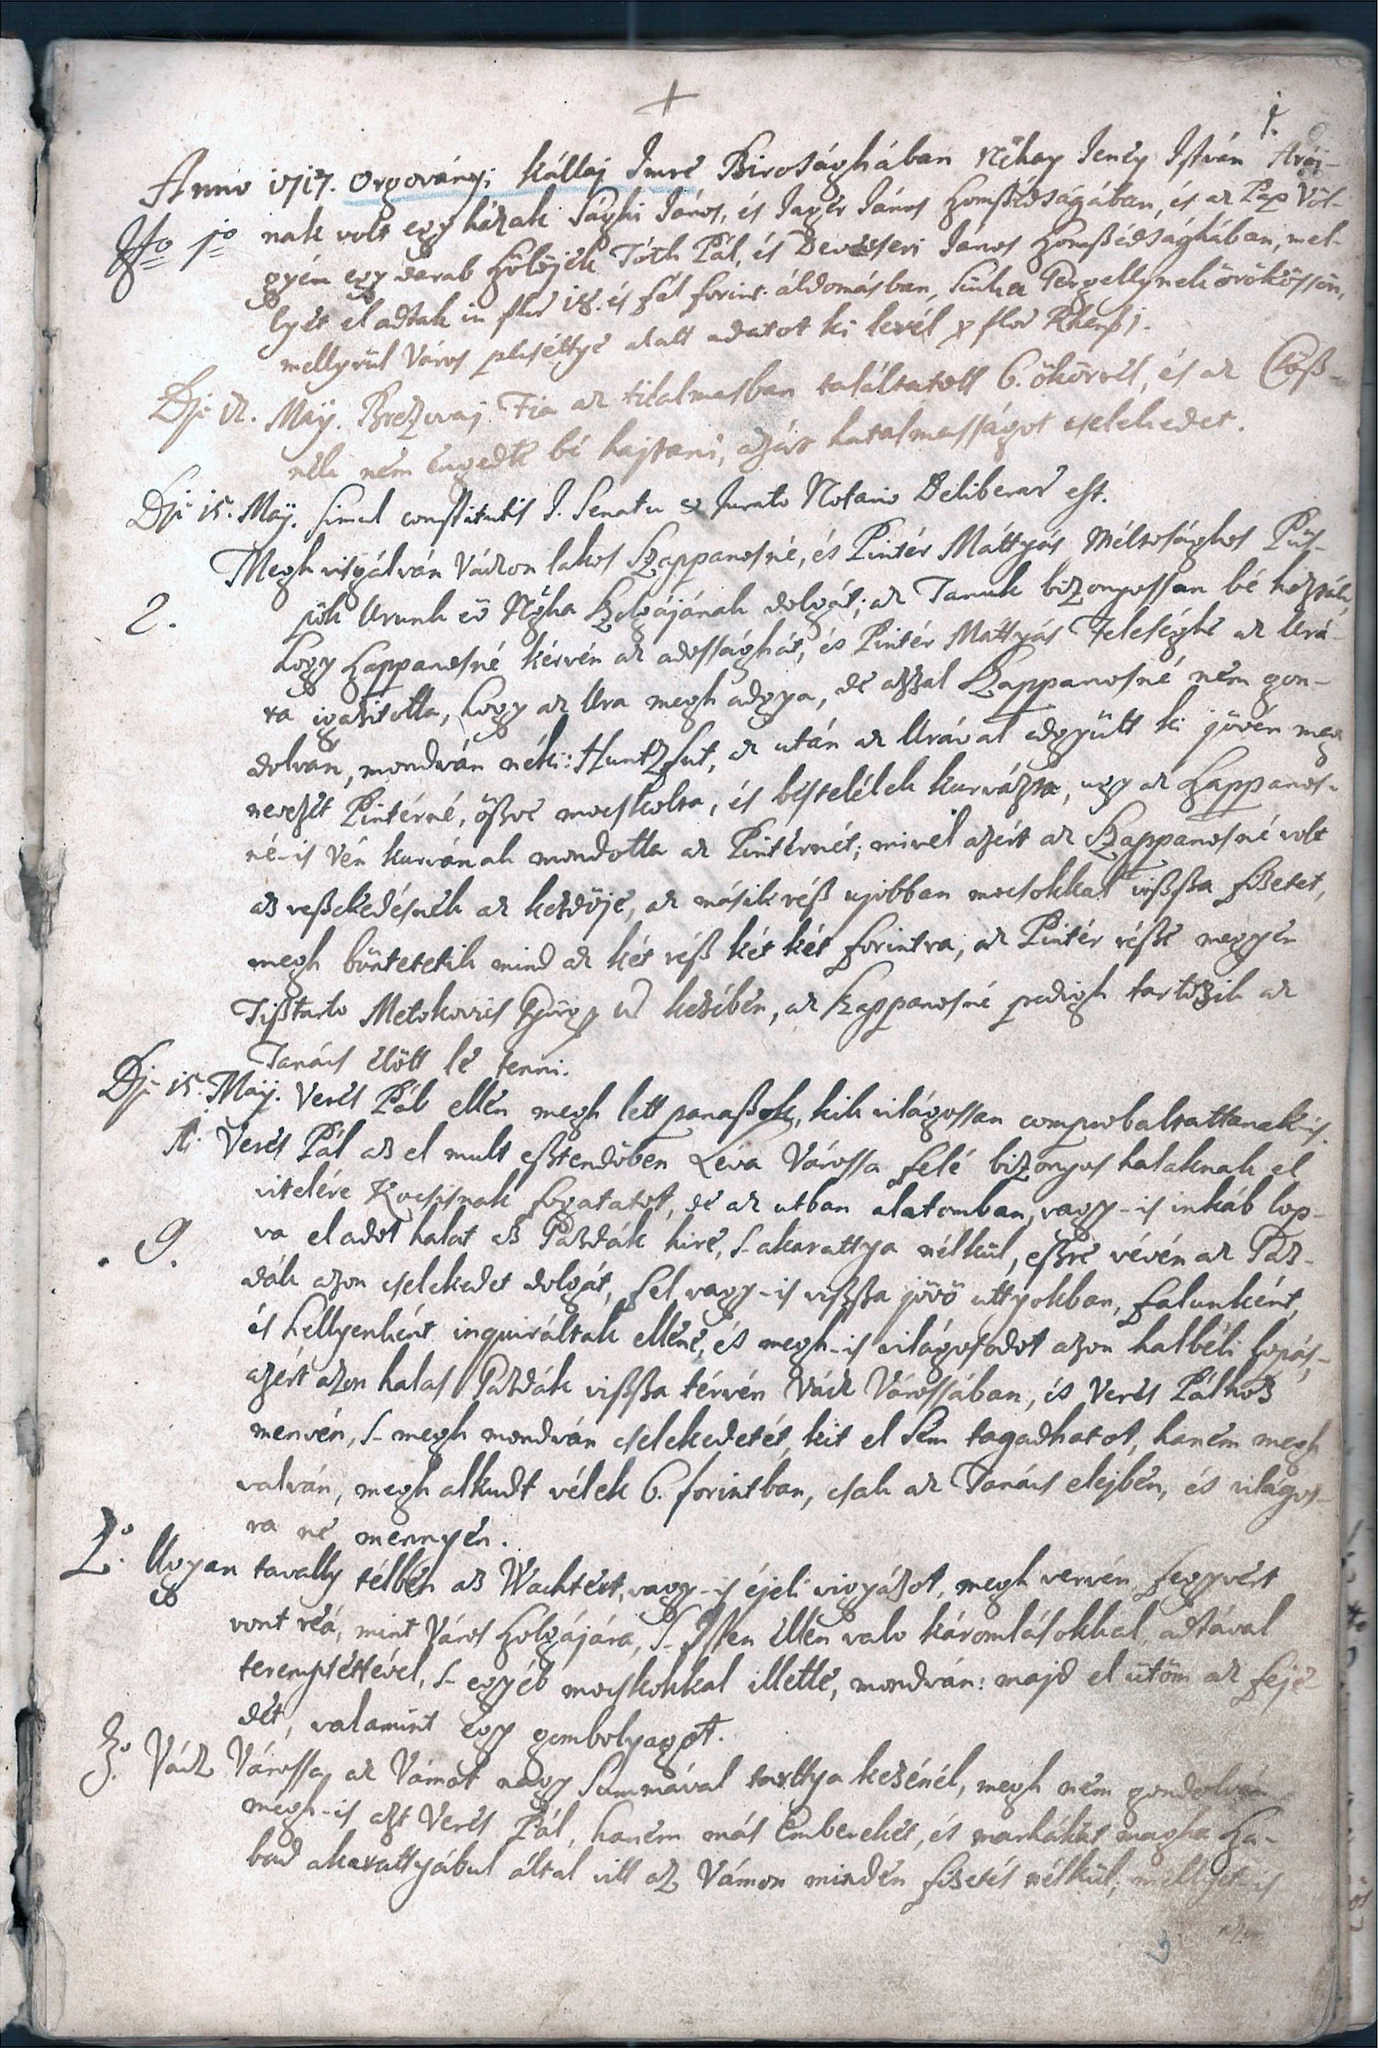 1.
Anno 1717. Orgoványi Kállaj Imre Birosághában Néhay Jenéy István Árvái-
No 1o nak volt egy házak Sághi János, és Jagér János Szomßédságában, és az Pap Völ-
gyén egy darab Szölöjök Tóth Pál, és Devecseri János Szomßédsághában, mel-
lyet el adtak in flor 18. és fél forint áldomásban, Sinka Gergellynek örökössön,
mellyrül Város pecséttye alatt adatot ki levél
Die 12. Maÿ. Brezovaj Fia az tilalmasban találtatott 6. ökörrel, és az Csöß-
nek ném éngedte bé hajtani, azért hatalmasságot cselekedet.
Die 15. Maÿ. Simul constitutis J. Senatu & Jurato Notario Deliberat est.
Megh visgálván Váczon lakos Szappanosné, és Pintér Máttyás Méltósághos Püs-
2. pök Urunk eö Ngha Szolgájának dolgát; az Tanuk bizonyossan bé hozták,
hogy Szappanosné kérvén az adosságát, és Pintér Máttyás Felesége az Urá-
ra igazitotta, hogy az Ura megh adgya, de azzal Szappanosné ném gon-
dolván, mondván néki: Huntzfut, az után az Urával edgyütt ki jövén
nevezét Pintérné, ößve mocskolta, és béstelélek kurvázta, ugy az Szappanos-
né-is Vén kurvának mondotta az Pintérnét; mivel azért az Szappanosné volt
az veßekedésnek az kezdöje, az másik réß ujobban mocsokkal vißßa fizetet,
megh büntetetik mind az két réß két két forintra, az Pintér réße megyen
Tißtarto Metokovics György Ur kezében, az Szappanosné pedigh tartozik az
Tanács elött le tenni.
Die 15. Maÿ. Verés Pál ellén megh lett panaßok, kik világossan comprobaltattanak-is.
1. Verés Pál az el mult eßtendöben Léva Várossa felé bizonyos halaknak el
vitelére Kocsisnak fogatatot, de az utban alatomban, vagy-is inkáb lop-
. 9. va el adot halat az Gazdák hire, s-akarattya nélkül, eßre vévén az Gaz-
dák azon cselekedet dolgát, fel vagy-is vißßa jövö uttyokban, falunként,
és hellyenként inquiráltak elléne, és megh-is világosodot azon halbéli lopás,
azért azon halas Gazdák vißßa térvén Vácz Várossában, és Verés Pálhoz
menvén, s-megh mondván cselekedetét, kit el sém tagadhatot, haném megh
valván, megh alkudt vélek 6. forintban, csak az Tanács elejbén, és világos-
ra ne mennyen.
2o. Ugyan tavally télbén az Wachtért, vagy-is éjeli vigyázot, megh vervén fegyvért
vont reá, mint Város Szolgájára, s-Isten ellén valo káromlásokkal, adtával
teremptéttével, s-egyéb mocskokkal illette, mondván: majd el ütöm az feje
dét, valamint egy gombolyagot.
3o. Vácz Várossa az Vámot nagy Summával tarttya kezénél, megh ném gondolván
megh-is azt Verés Pál, haném más Emberekét, és marhákat magha Sza-
bad akarattyábul által vitt az Vámon mindén fizetés nélkül, mellyet-is